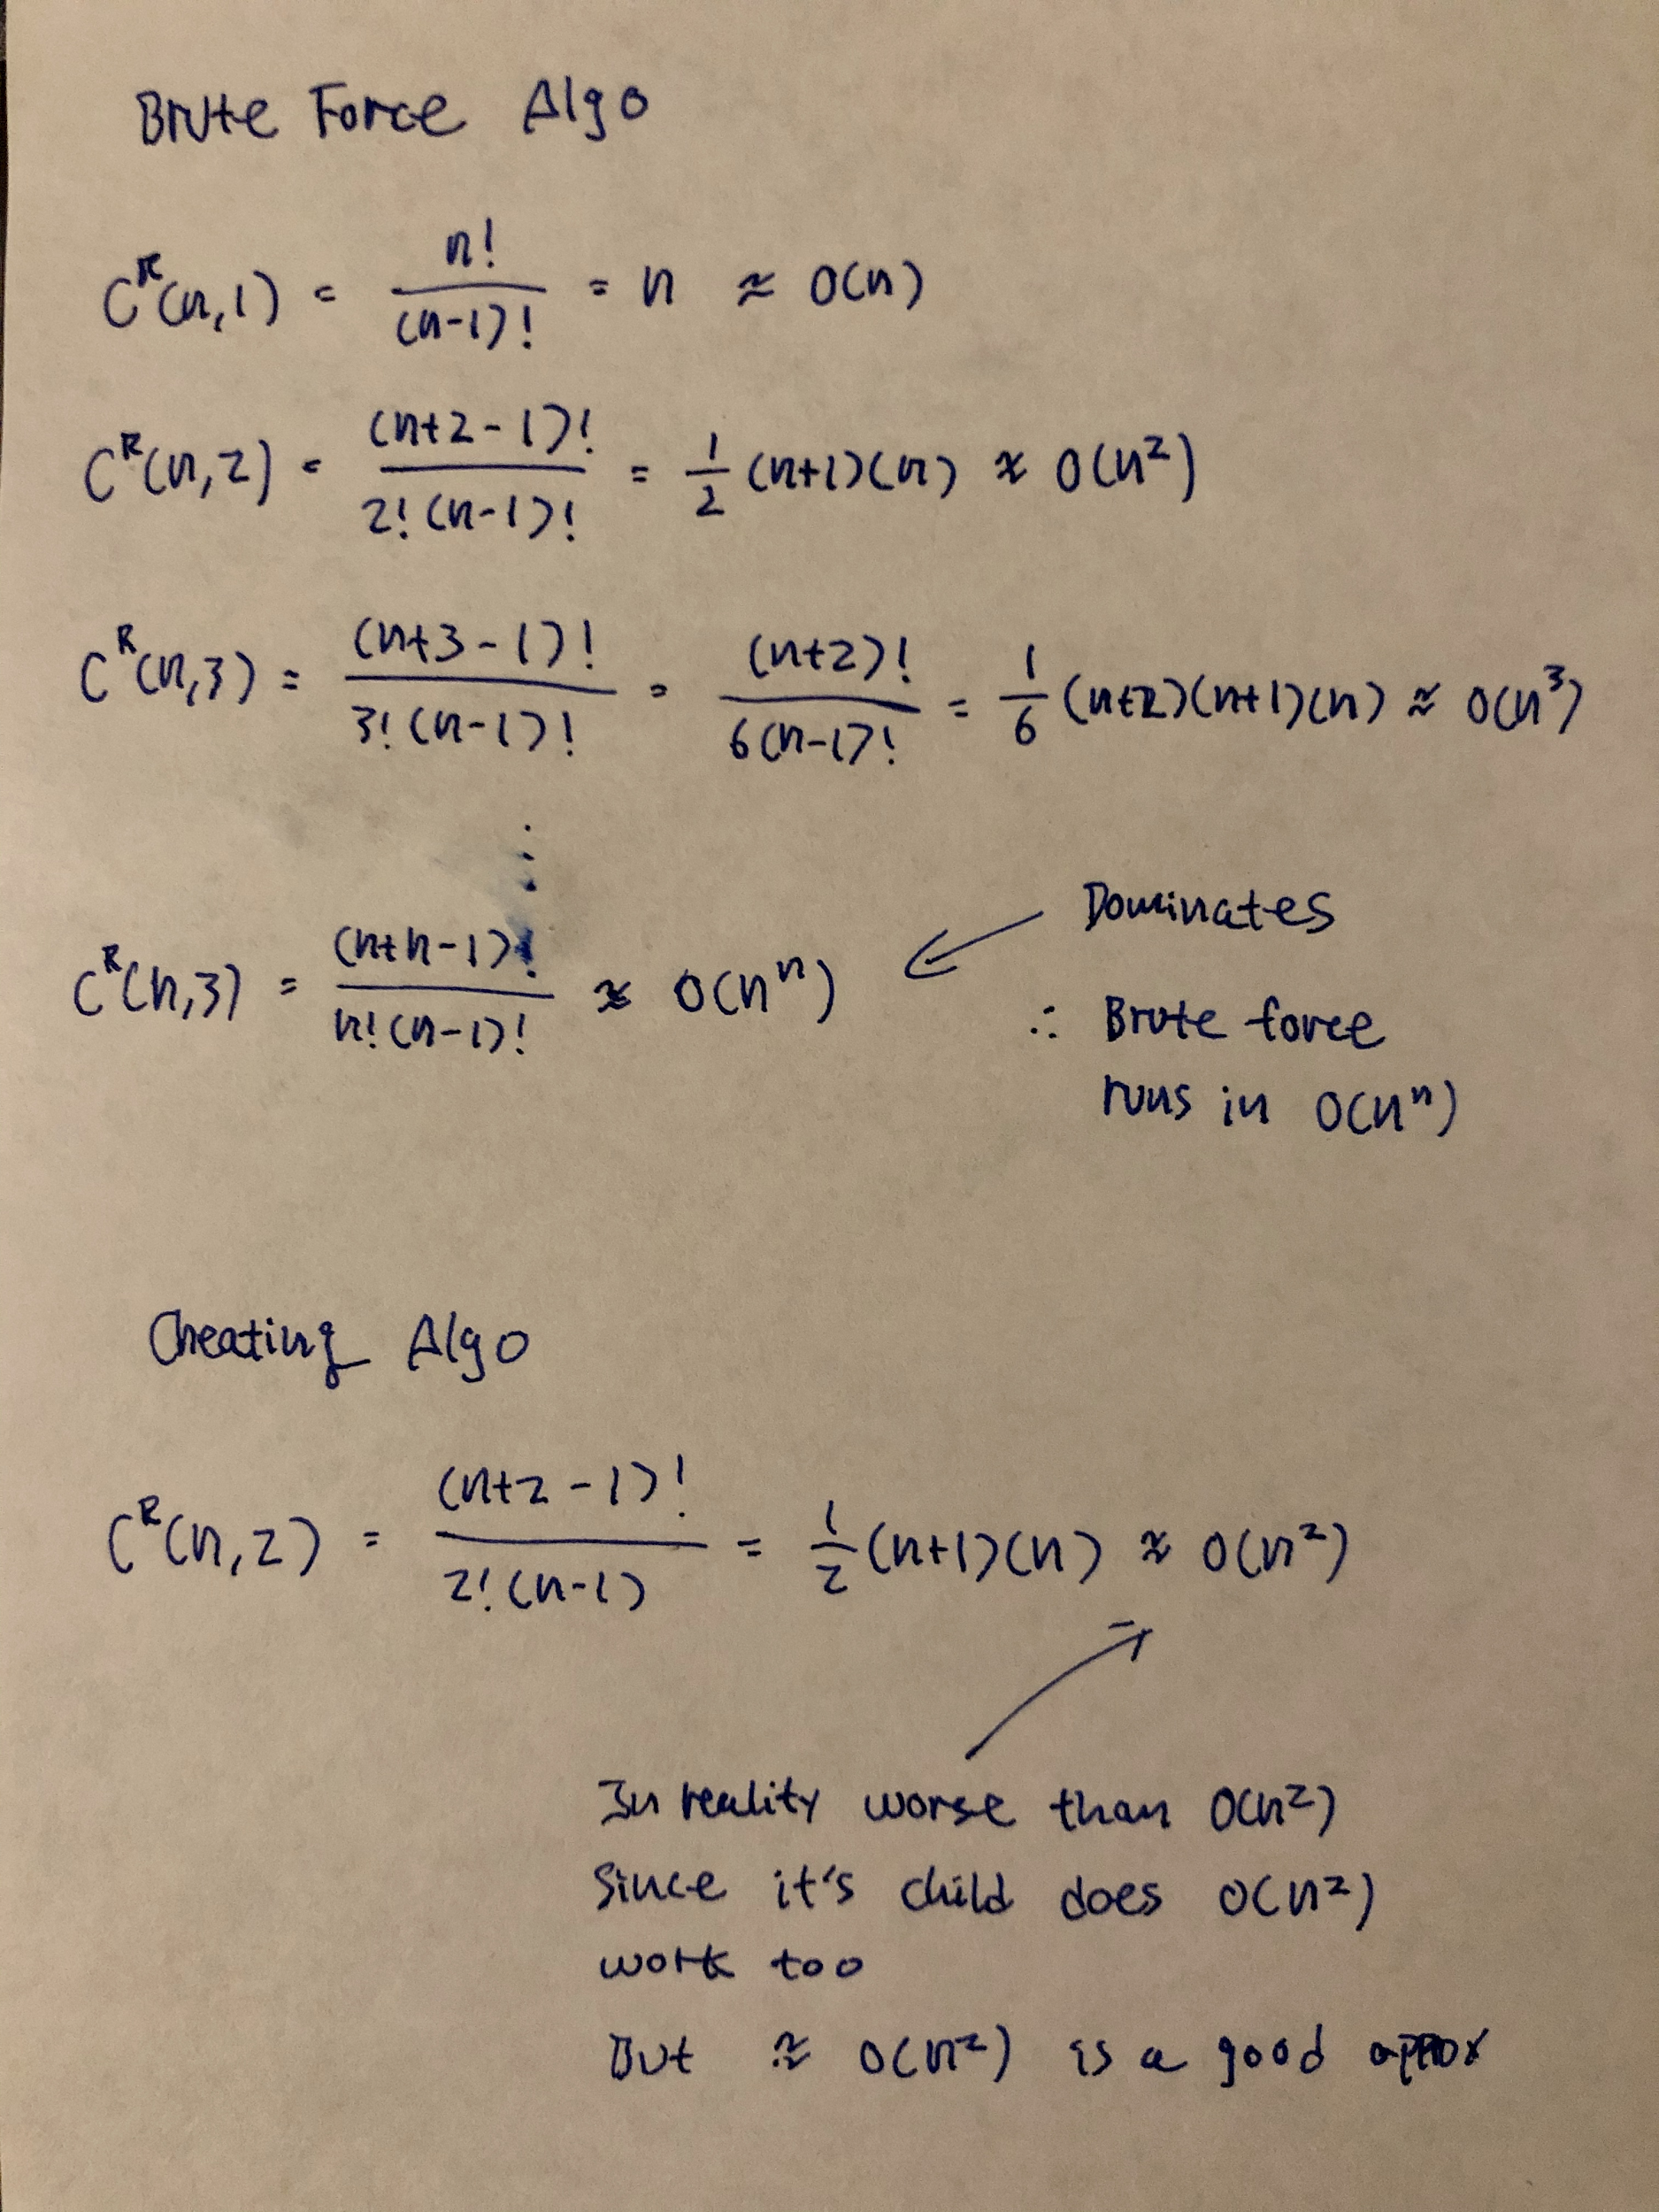 Brute Force Algo
C^R(n,1) = n!/(n-1)! = n ≈ O(n)
C^R(n,2) = (n+2-1)!/2!(n-1)! = 1/2 (n+1)(n) ≈ O(n²)
C^R(n,3) = (n+3-1)!/3!(n-1)! = (n+2)!/6(n-1)! = 1/6 (n+2)(n+1)(n) ≈ O(n³)
⋮
C^R(n,3) = (n+n-1)!/n!(n-1)! ≈ O(n^n) ← Dominates
∴ Brute force
runs in O(n^n)
Cheating Algo
C^R(n,2) = (n+2-1)!/2!(n-1) = 1/2 (n+1)(n) ≈ O(n²)
In reality worse than O(n²)
Since it's child does O(n²)
work too
But ≈ O(n²) is a good approx